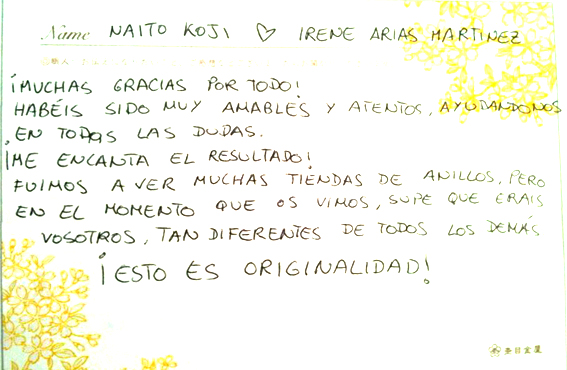 Name NAITO KOJI ♡ IRENE ARIAS MARTINEZ
¡MUCHAS GRACIAS POR TODO!
HABÉIS SIDO MUY AMABLES Y ATENTOS, AYUDANDONOS
EN TODAS LAS DUDAS.
¡ME ENCANTA EL RESULTADO!
FUIMOS A VER MUCHAS TIENDAS DE ANILLOS, PERO
EN EL MOMENTO QUE OS VIMOS, SUPE QUE ERAIS
VOSOTROS, TAN DIFERENTES DE TODOS LOS DEMÁS
¡ESTO ES ORIGINALIDAD!
杢目金屋